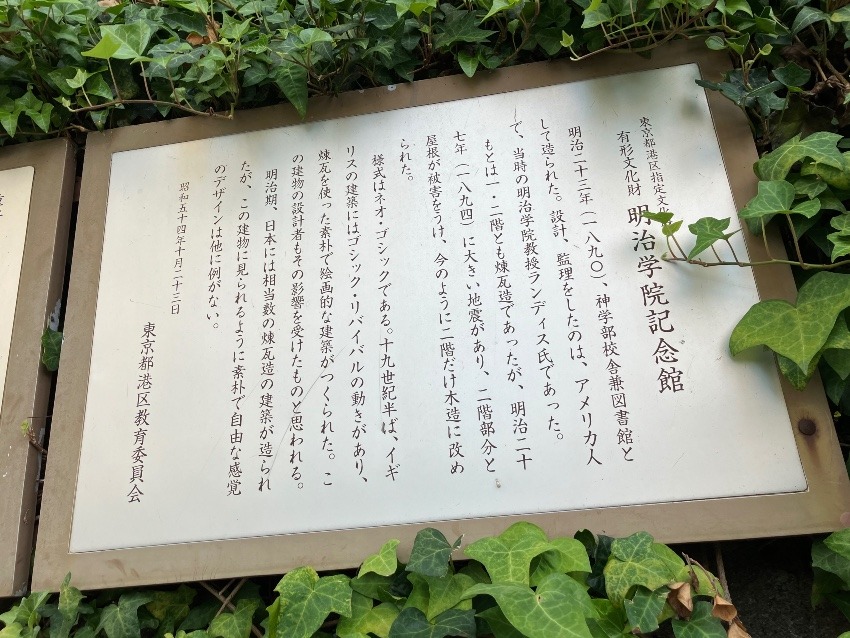 東京都港区指定文化
有形文化財 明治学院記念館
明治二十三年(一八九〇)、神学部校舎兼図書館と
して造られた。設計、監理をしたのは、アメリカ人
で、当時の明治学院教授ランディス氏であった。
もとは一・二階とも煉瓦造であったが、明治二十
七年(一八九四)に大きい地震があり、二階部分と
屋根が被害をうけ、今のように二階だけ木造に改め
られた。
様式はネオ・ゴシックである。十九世紀半ば、イギ
リスの建築にはゴシック・リバイバルの動きがあり、
煉瓦を使った素朴で絵画的な建築がつくられた。こ
の建物の設計者もその影響を受けたものと思われる。
明治期、日本には相当数の煉瓦造の建築が造られ
たが、この建物に見られるように素朴で自由な感覚
のデザインは他に例がない。
昭和五十四年十月二十三日
東京都港区教育委員会